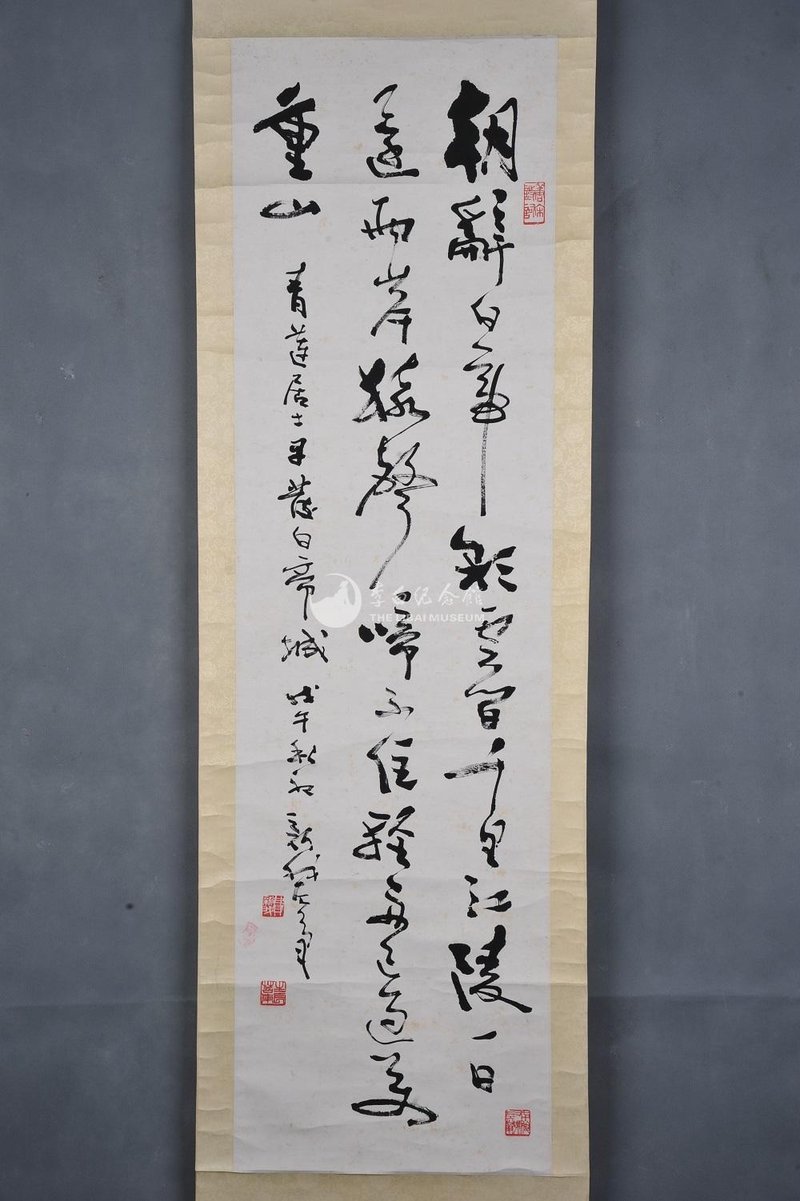 朝辭白帝彩雲間千里江陵一日
還兩岸猿聲啼不住輕舟已過萬
重山
青蓮居士早發白帝城 戊午秋初
李白纪念馆
THE LIBAI MUSEUM